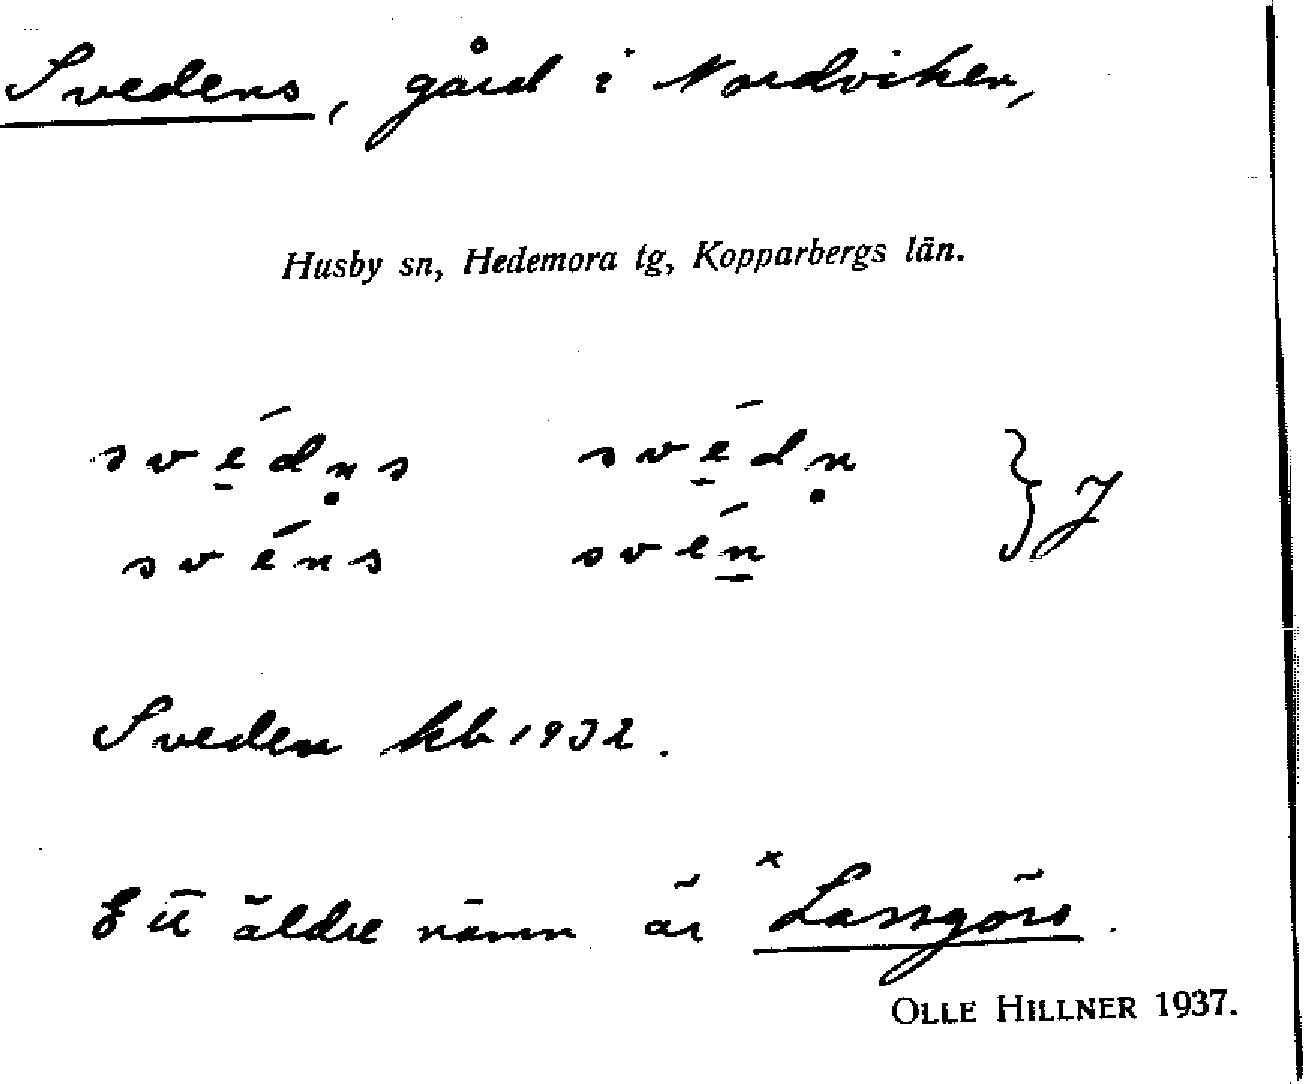 Svedens, gård i Nordviken,
Husby sn, Hedemora tg, Kopparbergs län.
své̲dn̥s své̲dn̥ } J
svéns svén̲
Sveden kb 1932.
Ett äldre namn är ×Lassgörs.
OLLE HILLNER 1937.